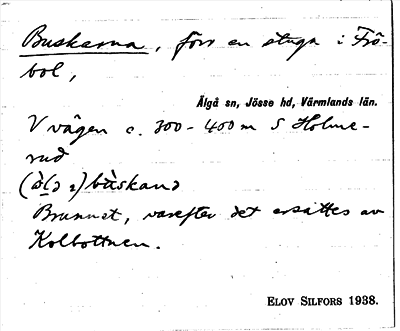 Buskarna, förr en stuga i Frö-
bol,
Älgå sn, Jösse hd, Värmlands län.
V vägen c. 300-400 m S Holme-
rud
búskana
Brunnet, varefter det ersattes av
Kolbottnen.
ELOV SILFORS 1938.